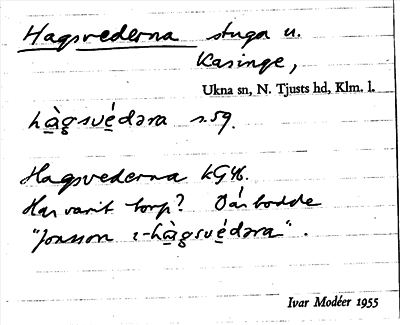 Hagsvederna stuga u.
Kasinge,
Ukna sn, N. Tjusts hd, Klm. l.
hàgsvédəra s. 59.
Hagsvederna kG46.
Har varit torp? Där bodde
"Jonsson i-hàgsvédəra".
Ivar Modéer 1955